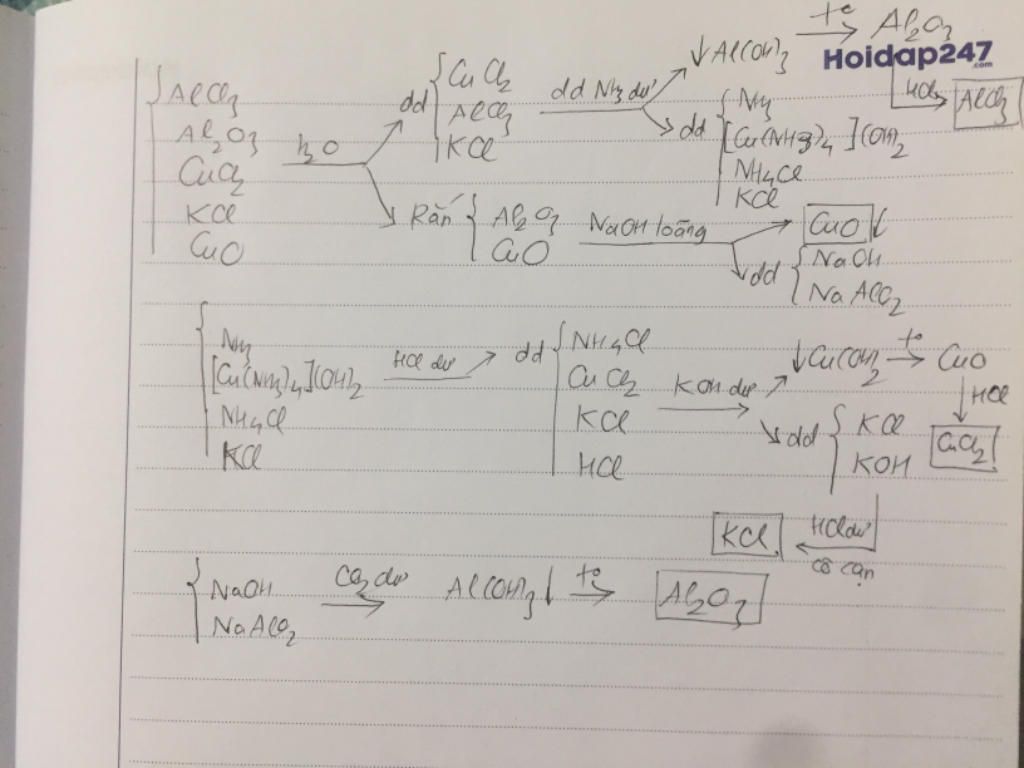 t° → Al₂O₃
Hoidap247.com
↓Al(OH)₃
HCl → AlCl₃
{ AlCl₃
Al₂O₃
CuCl₂
KCl
CuO
H₂O
dd { CuCl₂
AlCl₃
KCl
dd NH₃ dư
dd { NH₃
[Cu(NH₃)₄](OH)₂
NH₄Cl
KCl
Rắn { Al₂O₃
CuO
NaOH loãng
CuO↓
dd { NaOH
NaAlO₂
{ NH₃
[Cu(NH₃)₄](OH)₂
NH₄Cl
KCl
HCl dư
dd { NH₄Cl
CuCl₂
KCl
HCl
KOH dư
↓Cu(OH)₂ t° → CuO
↓ HCl
CuCl₂
dd { KCl
KOH
KCl ← HCl dư
cô cạn
{ NaOH
NaAlO₂
CO₂ dư → Al(OH)₃↓ t° → Al₂O₃